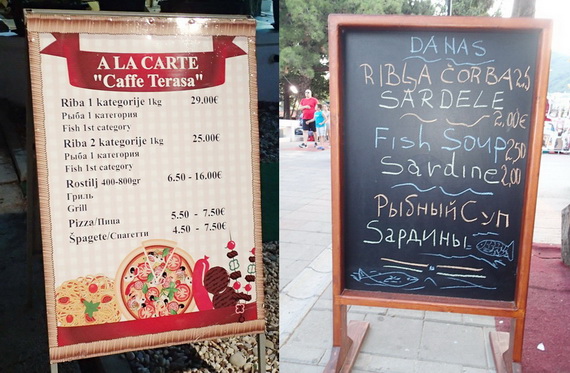 A LA CARTE
"Caffe Terasa"
Riba 1 kategorije 1kg 29.00€
Рыба 1 категория
Fish 1st category
Riba 2 kategorije 1kg 25.00€
Рыба 1 категория
Fish 1st category
Rostilj 400-800gr 6.50 - 16.00€
Гриль
Grill
Pizza/Пица 5.50 - 7.50€
Špagete/Спагетти 4.50 - 7.50€
DANAS
RIBLJA ČORBA 2,5
SARDELE
2,00€
Fish Soup 2,50
Sardine 2,00
Рыбный Суп
Sардины